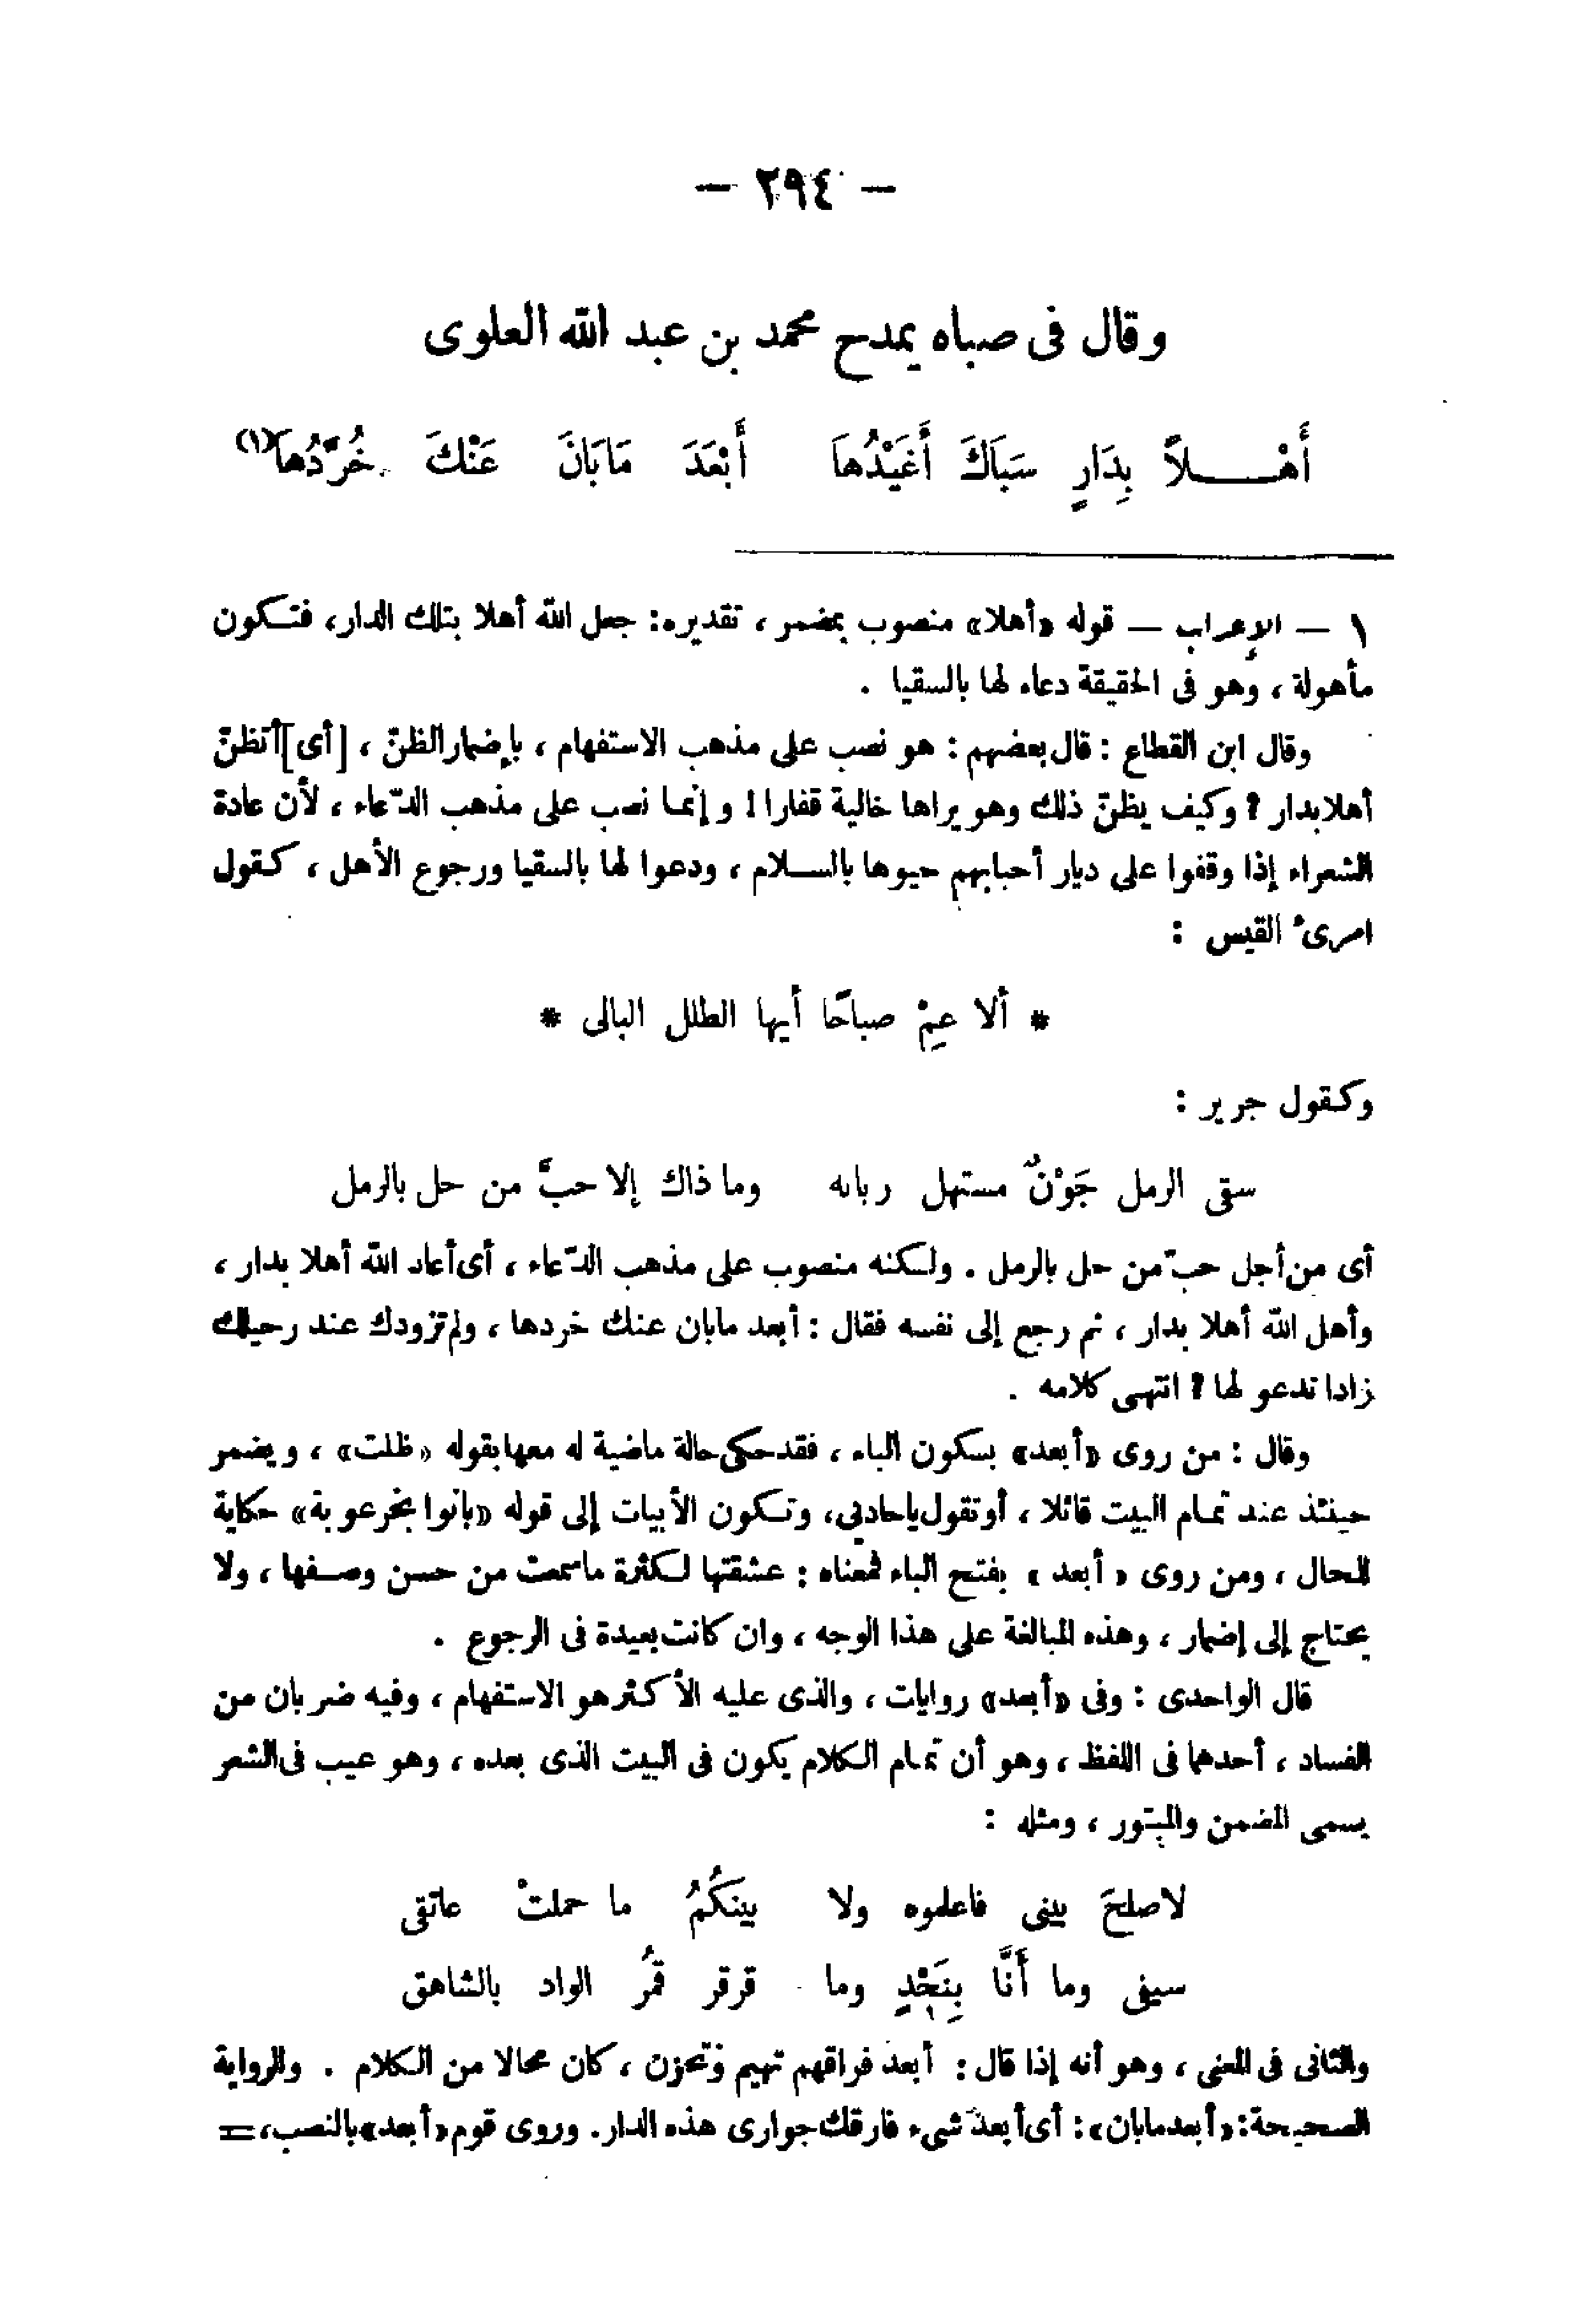 — ٢٩٤ —
وقال فى صباه يمدح محمد بن عبد الله العلوى
أَهْـــلاً بِدَارٍ سَبَاكَ أَغْيَدُهاَ أَبْعَدَ مَابَانَ عَنْكَ خُرَّدُها(١)
١ — الإعراب — قوله «أهلا» منصوب بمضمر ، تقديره: جعل الله أهلا بتلك الدار، فتكون
مأهولة ، وهو فى الحقيقة دعاء لها بالسقيا .
وقال ابن القطاع : قال بعضهم : هو نصب على مذهب الاستفهام ، بإضمار الظنّ ، [أى] أتظنّ
أهلا بدار ؟ وكيف يظنّ ذلك وهو يراها خالية قفارا ! وإنما نصب على مذهب الدّعاء ، لأن عادة
الشعراء إذا وقفوا على ديار أحبابهم حيوها بالســلام ، ودعوا لها بالسقيا ورجوع الأهل ، كقول
امرئ القيس :
* ألا عِمْ صباحًا أيها الطلل البالى *
وكقول جرير :
سقى الرمل جَوْنٌ مستهل ربابه وما ذاك إلا حبّ من حل بالرمل
أى من أجل حبّ من حل بالرمل . ولكنه منصوب على مذهب الدّعاء ، أى أعاد الله أهلا بدار ،
وأهل الله أهلا بدار ، ثم رجع إلى نفسه فقال : أبعد مابان عنك خردها ، ولم تزودك عند رحيلك
زادا تدعو لها ؟ انتهى كلامه .
وقال : من روى «أبعد» بسكون الباء ، فقد حكى حالة ماضية له معها بقوله «ظلت» ، ويضمر
حينئذ عند تمام البيت قائلا ، أو تقول ياحاديى، وتكون الأبيات إلى قوله «بانوا بخرعوبة» حكاية
للحال ، ومن روى « أبعد » بفتح الباء فمعناه : عشقتها لكثرة ماسمعت من حسن وصفها ، ولا
يحتاج إلى إضمار ، وهذه المبالغة على هذا الوجه ، وان كانت بعيدة فى الرجوع .
قال الواحدى : وفى «أبعد» روايات ، والذى عليه الأكثر هو الاستفهام ، وفيه ضربان من
الفساد ، أحدهما فى اللفظ ، وهو أن تمام الكلام يكون فى البيت الذى بعده ، وهو عيب فى الشعر
يسمى المضمن والمبتور ، ومثله :
لاصلحَ بينى فاعلموه ولا بينكُمُ ما حملتْ عاتقى
سيفى وما أَنَّا بِنَجْدٍ وما قرقر قمرُ الواد بالشاهق
والثانى فى المعنى ، وهو أنه إذا قال : أبعد فراقهم تهيم وتحزن ، كان محالا من الكلام . والرواية
الصحيحة: «أبعد مابان» : أى أبعدَ شىء فارقك جوارى هذه الدار. وروى قوم «أبعد» بالنصب، =